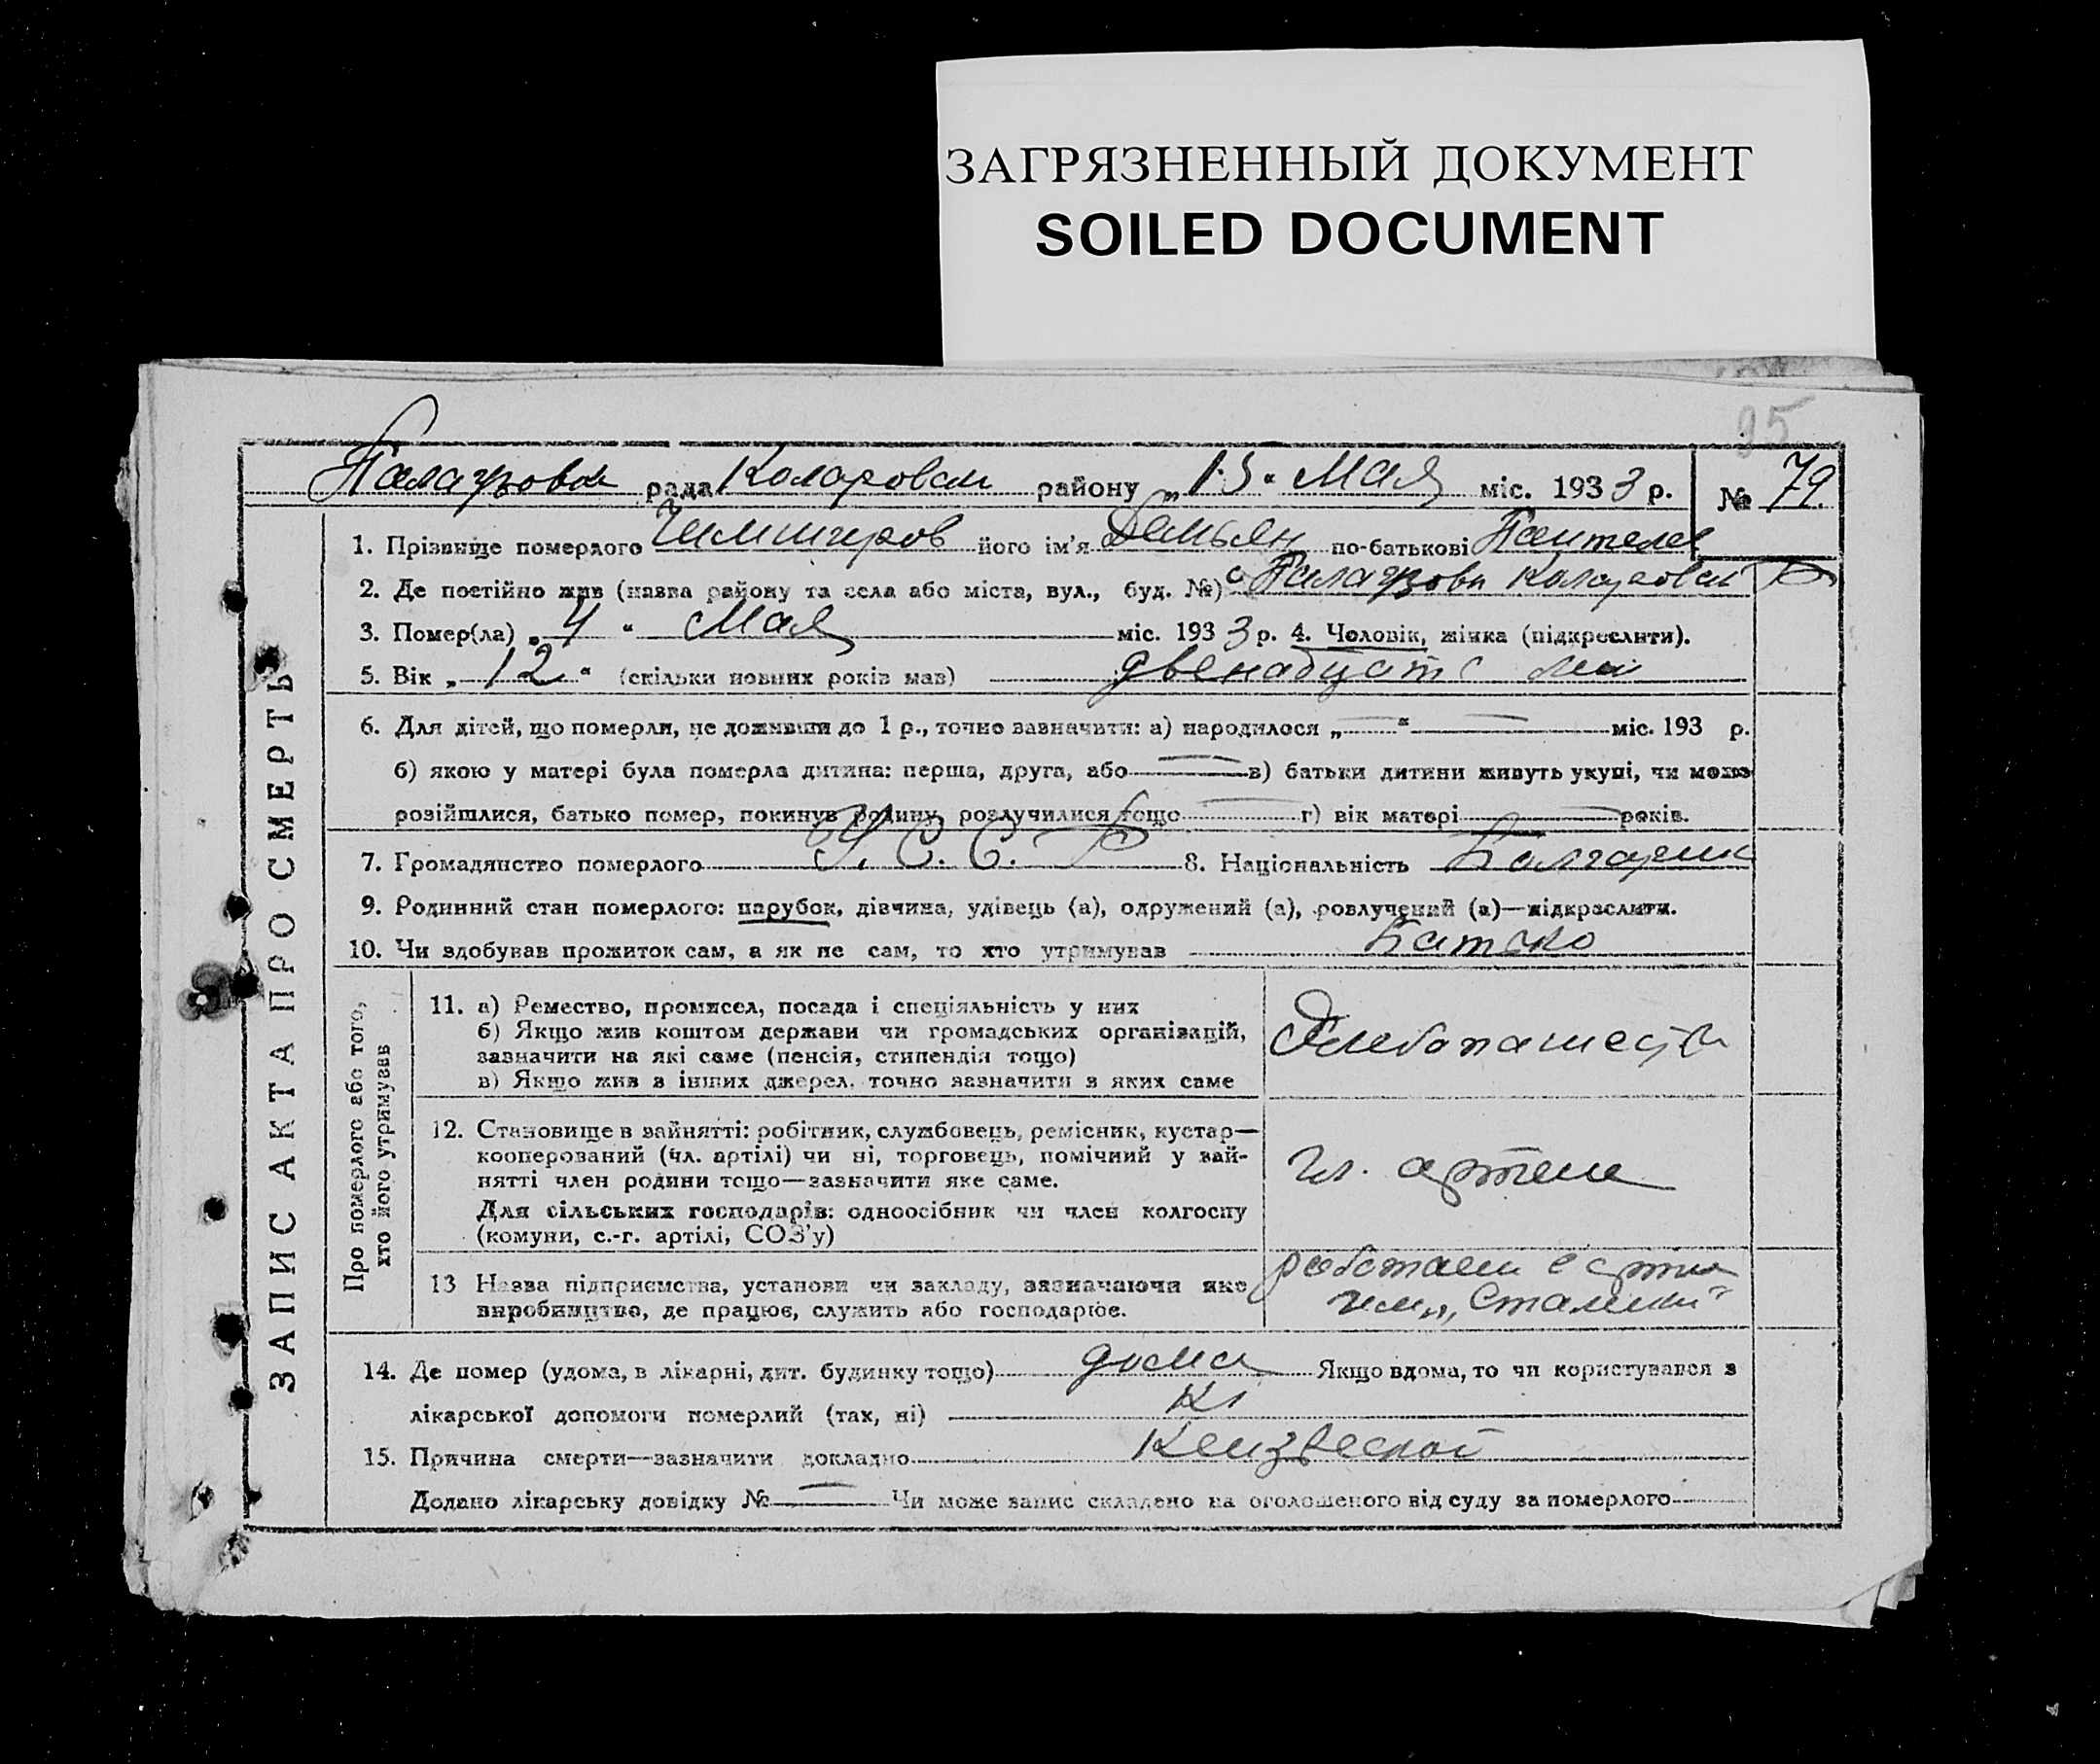 ЗАГРЯЗНЕННЫЙ ДОКУМЕНТ
SOILED DOCUMENT
95
рада Коларовск району „13“ Мая міс. 1933 р. № 79.
ЗАПИС АКТА ПРО СМЕРТЬ
1. Прізвище померлого Чимширов його ім'я Демьян по-батькові Пантелев
2. Де постійно жив (назва району та села або міста, вул., буд. №) с
3. Помер(ла) „4“ Мая міс. 1933 р. 4. Чоловік, жінка (підкреслити).
5. Вік „12“ (скільки повних років мав) двенадцать лет
6. Для дітей, що померли, не доживши до 1 р., точно зазначити: а) народилося „—“ — міс. 193 р.
б) якою у матері була померла дитина: перша, друга, або — в) батьки дитини живуть укупі, чи може
розійшлися, батько помер, покинув родину, розлучилися тощо — г) вік матері — років.
7. Громадянство померлого У. С. С. Р 8. Національність Болгарин
9. Родинний стан померлого: парубок, дівчина, удівець (а), одружений (а), розлучений (а)—підкреслити.
10. Чи здобував прожиток сам, а як не сам, то хто утримував Батько
Про померлого або того,
хто його утримував
11. а) Ремество, промисел, посада і спеціяльність у них
б) Якщо жив коштом держави чи громадських організацій,
зазначити на які саме (пенсія, стипендія тощо)
в) Якщо жив з інших джерел, точно зазначити з яких саме
Хлебопашеств
12. Становище в занятті: робітник, службовець, ремісник, кустар—
кооперований (чл. артілі) чи ні, торговець, помічний у зай-
нятті член родини тощо—зазначити яке саме.
Для сільських господарів: одноосібник чи член колгоспу
(комуни, с.-г. артілі, СОЗ'у)
чл. артели
13 Назва підприємства, установи чи закладу, зазначаючи яке
виробництво, де працює, служить або господарює.
работает
им „Сталина“
14. Де помер (удома, в лікарні, дит. будинку тощо) дома Якщо вдома, то чи користувався з
лікарської допомоги померлий (так, ні) Ні
15. Причина смерти—зазначити докладно
Додано лікарську довідку № — Чи може запис складено на оголошеного від суду за померлого